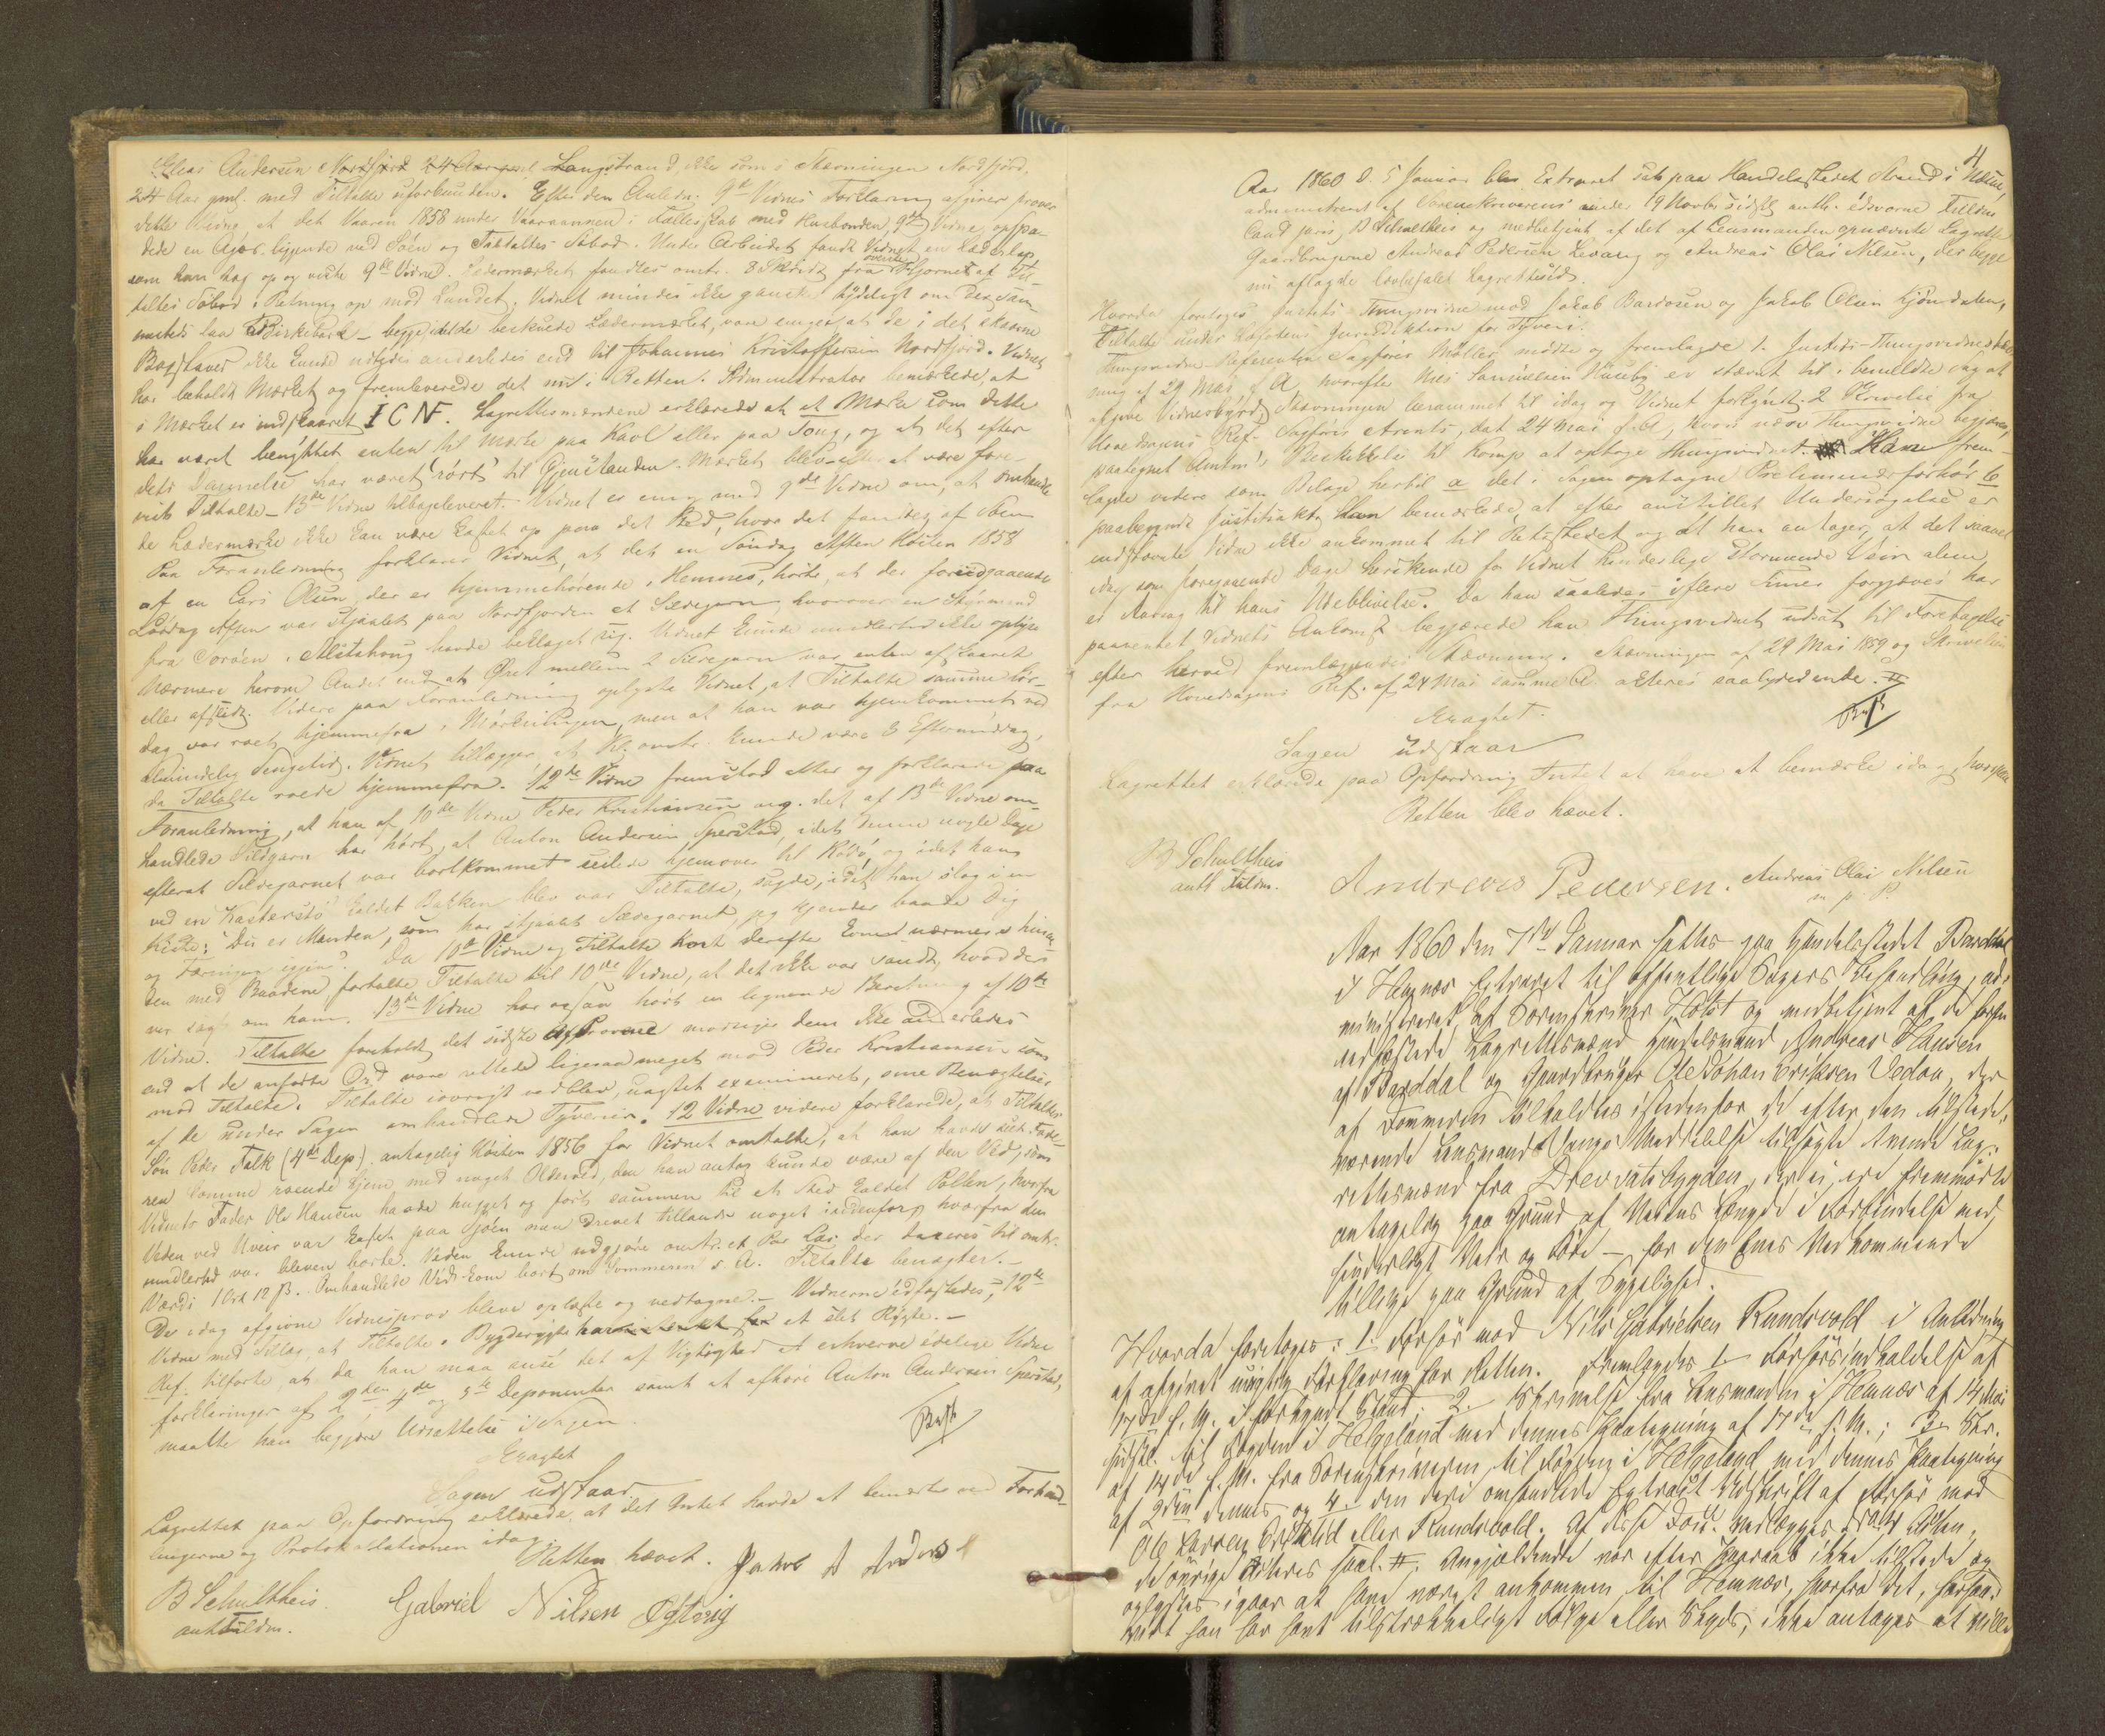 Elias Andersen Nordfjord 24 Aar gml Langstrand, ikke som i Stævningen Nordfjord,
24 Aar gml. med Tiltalte uforbunden. Efter dem Anledn. 9de Vidnes Forklaring afgiver prover
dette Vidne at det Vaaren 1858 under Vaaraannen i Fællesskab med Husbonden, 9de Vidne, opspa-
dede en Ager liggende ved Søen og Tiltaltes Støbod. Under Arbeidet fandt Vidnet en Læderlap
som han tog op og viste 9de Vidne. Ledermærket fandtes omtr. 8 Skridt fra øverste Hjørnet af Til-
taltes Søbod i Retning op mod Landet. Vidnet mindes ikke ganske tydeligt om dessam-
metsteds laa Birkebark - begge idetde beskuede Ledermærket, vare enige at de i det skaarne
Bogstaver ikke kunde udtydes anderledes end til Johannes Kristoffersen Nordfjord. Vidnet
har beholdt Mærket og fremleverede det nu i Retten. Administrator bemærkede, at
i Mærket er indskaaret I C N. Lagrettesmændene erklærede at et Mærke som dette
har været benyttet enten til Mærke paa Kavl eller paa Toug, og at det efter
dets Dannelse har været rört til Gjenstanden. Mærket blev efter at være fore-
vist Tiltalte - 13de Vidne tilbageleveret. Vidnet er enig med 9de Vidne om, at omhand-
de Ledermærke ikke kan være kastet op paa det Sted, hvor det fandtes, af Søen
Paa Foranledning forklarer Vidnet, at det en Søndag Aften Høsten 1858
af en Lars Olsen, der er hjemmehørende i Hemnes, hørte, at der foregaaende
Løverdag Aften var stjaalet paa Nordfjorden et Sildegarn, hvorover en Styrmand
fra Torøen i Alstahoug havde beklaget sig. Vidnet kunde imidlertid ikke oplyse
Nærmere herom Andet end at Øret mellem 2 Sildegarn var enten afskaaret
eller afslidt. Videre paa Foranledning oplyste Vidnet, at Tiltalte samme Lör-
dag var roet hjemmefra i Mørkningen, men at han var hjemkommet ved
almindelig Sengetid. Vidnet tillægger at Kl. omtr. kunde være 3 Eftermiddag,
da Tiltalte roede hjemmefra. 12de Vidne fremstod atter og forklarede paa
Foranledning, at han af 10de Vidne Peder Kristiansen ang. det af 13de Vidne om-
handlede Sildgarn har hört, at Anton Andersen Sperstad, idet denne nogle Dage
efterat Sildegarnet var bortkommet seilede hjemover til Rödö, og idet han
ved en Kasterstö kaldet Bakken blev var Tiltalte, sagde, idet han slog i en
Kiste: "Du er Manden, som har stjaalet Sildegarnet, jeg kjender baade Dig
og Færingen igjen". Da 10de Vidne og Tiltalte kort derefter kom nærmere hinan-
den med Baadene fortalte Tiltalte til 10de Vidne, at det ikke var sandt, hvad der
var sagt om ham. 13de Vidne har ogsaa hört en lignende Beretning af 10de
Vidne. Tiltalte foreholdt det sidste afprovne modsiger dem ikke anderledes
end at de anførte Ord vare rettede ligesaameget mod Peder Kristiansen som
mod Tiltalte. Tiltalte iøvrigt vedblev, uagtet examineret, sine Benægtelser
af de under Sagen omhandlede Tyverier. 12 Vidne videre forklarede, at Tiltaltes
Sön Peder Falk (4de Dep) antagelig Høsten 1856 for Vidnet omtalte, at han havde seet Fade-
ren komme roende hjem med noget Olderved, den han antog kunde være af den Ved, som
Vidnets Fader Ole Hansen havde hugget og fort sammen til et Sted kaldet Pollen, hvorfra
Veden ved Uveir var kastet paa Sjøen men drevet tillands noget indenfor, hvorfra den
imidlertid var bleven borte. Veden kunde udgjøre omtr. et Par Læs der taxeres til omtr.
Værdi 1 Ort 12 ß. Omhandlede Ved kom bort om Sommeren s. A. Tiltalte benægter.-
De idag afgivne Vidnesprov bleve oplæste og vedtagne. - Vidnerne edfæstedes, 12te
Vidne med Tillæg, at Tiltalte i Bygderygte har et slet Rygte.-
Ref. tilførte, at da han maa anse det af Vigtighed at erhverve edelige Vidne
forklaringer af 2den, 4de og 5te Deponenter samt at afhöre Anton Andersen Sperstad,
maatte han begjære Udsættelse i Sagen.
Eragtet
Sagen udstaar
Lagrettet paa Opfordring erklærede, at det Intet havde at bemærke ved Forhand-
lingerne og Protokollationen idag.
Retten hævet. Jakob A Anders
B Schultheis. Gabriel Nilsen Østvig
auth Fuldm.
4
Aar 1860 d. 5 Januar blev Extraret sat paa Handelsstedet Strand i Nesne,
administreret af Sorenskriverens under 19 Novbr sidstl. auth. edsvorne Fuldm
cand juris, B Schultheis og medbetjent af det af Lensmanden opnævnte Lagrette
Gaardbrugerne Andreas Pedersen Levang og Andreas Olai Nilsen, der begge
nu aflagde lovbefalet Lagretteseed.
Hvorda foretoges Justits-Thingsvidne mod Jakob Bardosen og Jakob Olsen Kjöndalen,
Tiltalte under Lofotens Jurisdiktion for Tyveri.
Thingsvidne-Referenten Sagförer Möller mødte og fremlagde 1. Justits-Thingsvidnestæv-
ning af 29 Mai f. A., hvorefter Nils Samuelsen Husby er stævnet til i bemeldte Sag at
afgive Vidnesbyrd, Stævningen berammet til idag og Vidnet forkyndt. 2 Skrivelse fra
Hovedsagens Ref. Sagförer Arentz, dat 24 Mai f. A., hvori nærv Thingsvidne begjæres,
paategnet Amtm's Beskikkelse til Komp. at optage Thingsvidnet. Han frem-
lagde videre som Bilage hertil a det i Sagen optagne Preliminærforhör b
paabegyndt Justitsakt. Han bemærkede, at efter anstillet Undersögelse er
indstævnte Vidne ikke ankommet til Retsstedet og at han antager, at det saavel
idag som foregaaende Dage herskende for Vidnet hinderlige stormende Veir alene
er Aarsag til hans Udeblivelse. Da han saaledes i flere Timer forgjæves har
paaventet Vidnets Ankomst begjærede han Thingsvidnet udsat til Foretagelse
efter herved fremlæggendes Stævning. Stævningen af 29 Mai 1859 og Skrivelsen
fra Hovedsagens Ref. af 24 Mai samme A. akteres saalydende. #
Eragtet.
Sagen udstaar
Lagrettet erklærede paa Opfordring Intet at have at bemærke idag, hvorefter
Retten blev hævet.
B Schultheis
auth Fuldm.
Andreas Pedersen. Andreas Olai Nilsen
m. p. P.
Aar 1860 den 7de Januar sattes paa Handelsstedet Barddal
i Hemnes Extraret til offentlige Sagers Behandling, ad-
ministreret af Sorenskriver Holst og medbetjent af de
edfæstede Lagrettesmænd Handelsmand Andreas Hansen
af Barddal og Gaardbruger Ole Johan Eriksen Vedaa, der
af Dommeren tilkaldtes istedenfor de efter den tilstede-
værende Lensmand Vangs Meddelelse tilsagte tvende Lag-
rettesmænd fra Drevvatsbygden, der ei ere fremmødte
antagelig paa Grund af Veiens Længde i Forbindelse med
hinderligt Veir og Føre - for den Enes Vedkommende
tillige paa Grund af Sygelighed.
Hvorda foretoges: 1. Forhör mod Nils Gabrielsen Rundsvold i Anledning
af afgivet urigtig Forklaring for Retten. Fremlagdes 1 Forhörsindkaldelse af
17de f. M. i forkyndt Stand; 2. Skrivelse fra Lensmanden i Hemnæs af 14 Mai
sidstl. til Fogden i Helgeland med dennes Paategning af 17de s. M.; 3. Skr.
af 14de f. M. fra Sorenskriveren til Fogden i Helgeland med dennes Paategning
af 2den dennes og 4. den deri omhandlede Extract Udskrift af Forhör mod
Ole Larsen eller Rundsvold. Af disse Dok. vedlægges Akten,
de øvrige akteres saal. #. Angjældende var efter Paaraab ikke tilstede og
oplystes igaar at have været ankommen til Hemnæs, hvorfra det, forsaa-
vidt han har havt tilstrækkeligt Følge eller Skyds, ikke antages at ville